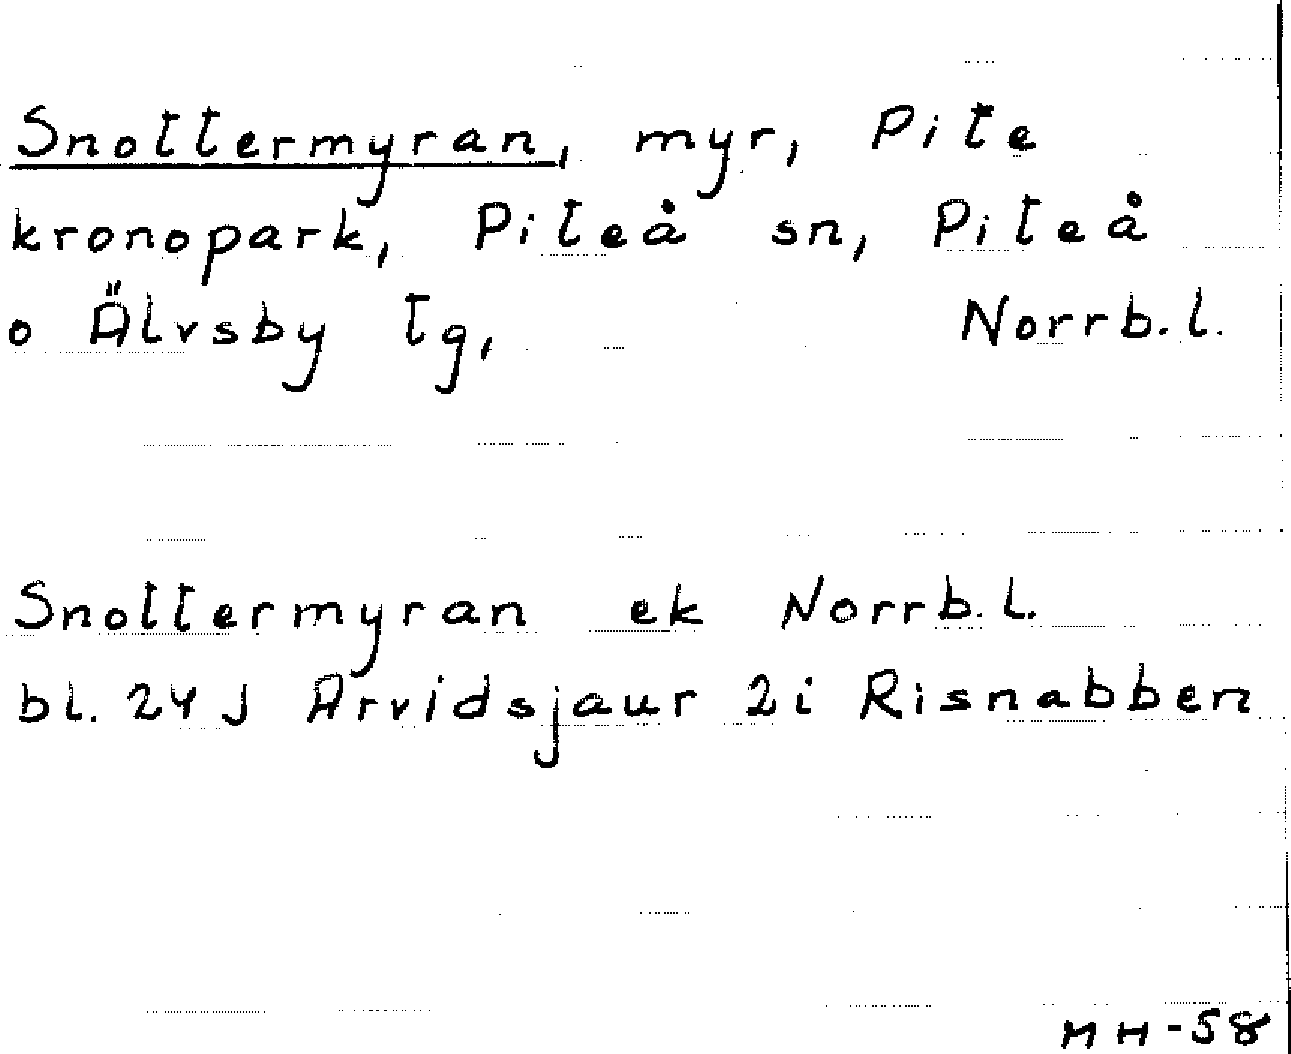 Snottermyran, myr, Pite
kronopark, Piteå sn, Piteå
o Älvsby tg, Norrb.l.
Snottermyran ek Norrb.l.
bl. 24 J Arvidsjaur 2i Risnabben
MH-58